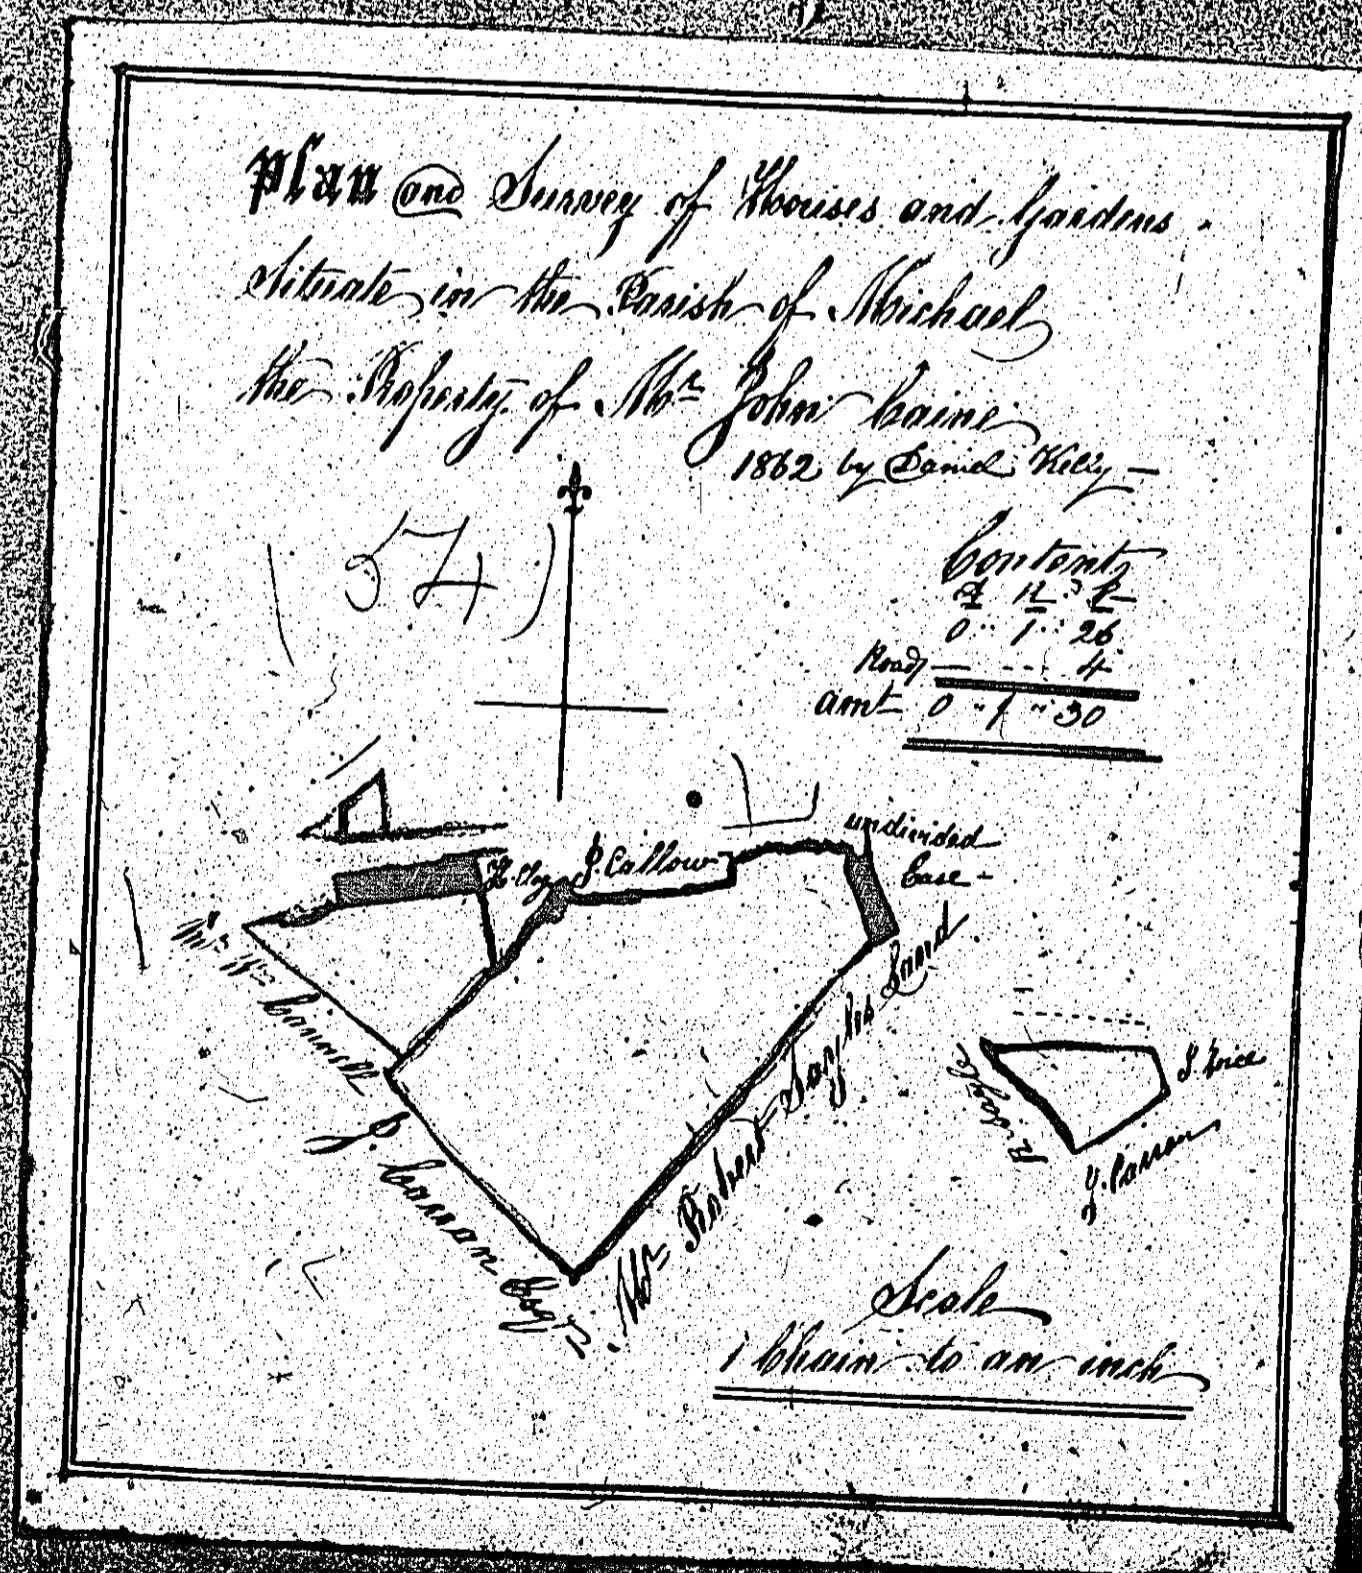 Plan and Survey of Houses and Gardens
Situate in the Parish of Michael
the Property of Mr John Caine
1862 by Daniel Kelly —
(54)
Contents
A R P
0 " 1 " 26
Road — --- 4
amt 0 " 1 " 30
undivided
Ease -
J. Callow
Mr Wm Cannell
J. Carran Esqr
Mr Robert Sayles Land
J. Carran
Scale
1 Chain to an inch